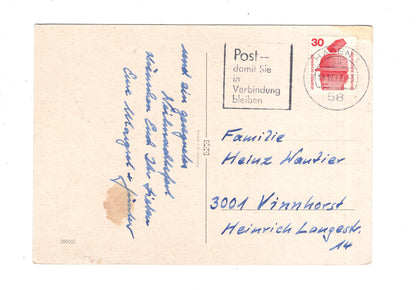 und ein gesegnetes
Weihnachtsfest
wünschen Euch Ihr Lieben
Eure Margret + Günter
Post--
damit Sie
in
Verbindung
bleiben
30
HAGEN
58
Familie
Heinz Wautier
3001 Vinnhorst
Heinrich Langestr.
14